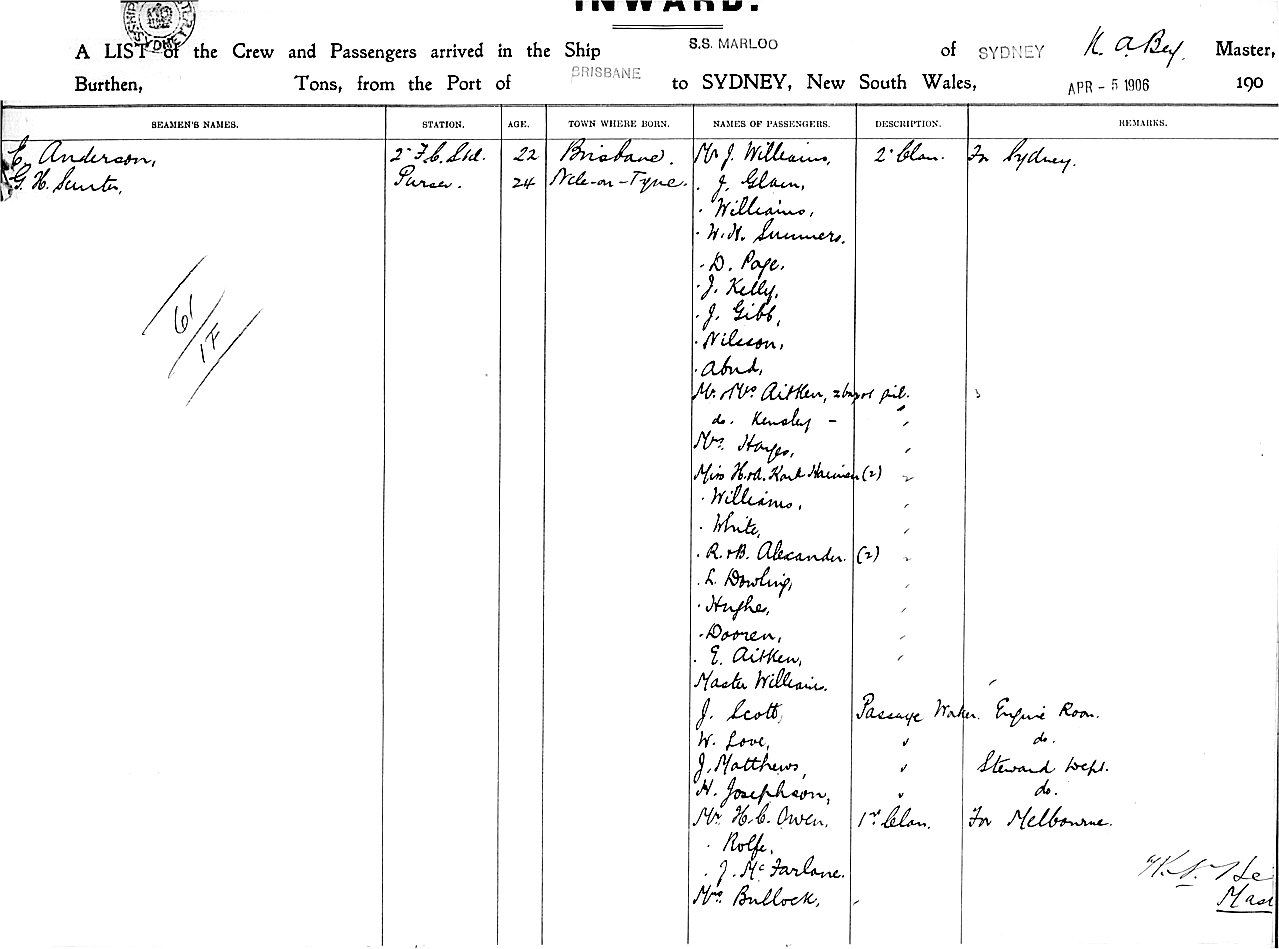 INWARD.
A LIST of the Crew and Passengers arrived in the Ship S.S. MARLOO of SYDNEY Master,
Burthen, Tons, from the Port of BRISBANE to SYDNEY, New South Wales, APR - 5 1906 190
SEAMEN'S NAMES. STATION. AGE. TOWN WHERE BORN. NAMES OF PASSENGERS. DESCRIPTION. REMARKS.
E. Anderson, 22 Brisbane. Mr J. Williams, 2 Class. For Sydney.
G. H. Purser. 24 N'cle-on-Tyne. " J.
" Williams,
" W. H. Summers.
" D. Page.
" J. Kelly,
" J. Gibb,
" Nilsson,
" Abud,
Mr. & Mrs. Aitken,
do. Kensley -
Mrs. Hayes,
Miss H. & A. (2)
" Williams,
" White,
" R. & B. Alexander. (2)
" L. Dowling,
" Hughes,
" Dooren,
" E. Aitken,
Master Williams.
J. Scott, Passage Worker. Engine Room.
W. Love, " do.
J. Matthews, " Steward Dept.
H. Josephson, " do.
Mr. H. C. Owen, 1st Class. For Melbourne.
" Rolfe,
" J. McFarlane.
Mrs. Bullock, "
61
17